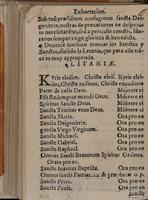 Exhortacion.
Sub tuũ præsidium confugimus sancta Dei
genitrix, nostras deprecationes ne despicias
in necessitatibus, sed à periculis cunctis, libe-
ra nos semper virgo gloriosa & benedicta.
LITANIAE.
Kyrie eleison. Christe eleis. Kyrie elei-
son, Christe audi nos, Christe exaudi nos
Pater de cælis Deus. Miserere ei
Fili Redemptor mundi Deus. Miserere ei
Spiritus Sancte Deus. Miserere ei
Sancta Trinitas vnus Deus. Miserere ei
Sancta Maria. Ora pro eo
Sancta Dei genitrix. Ora pro eo
Sancta Virgo Virginum. Ora pro eo
Sancte Michael. Ora pro eo
Sancte Gabriel. Ora pro eo
Sancte Raphael. Ora pro eo
Omnes Sancti Beatorum Spirituũ Ordines.
Orate pro eo
Sancte Ioannes Baptista. Ora pro eo
Omnes sancti Patriarchæ & prophetæ. Orate pro eo
Sancte Petre. Ora pro eo
Sancte Paule. Ora pro eo